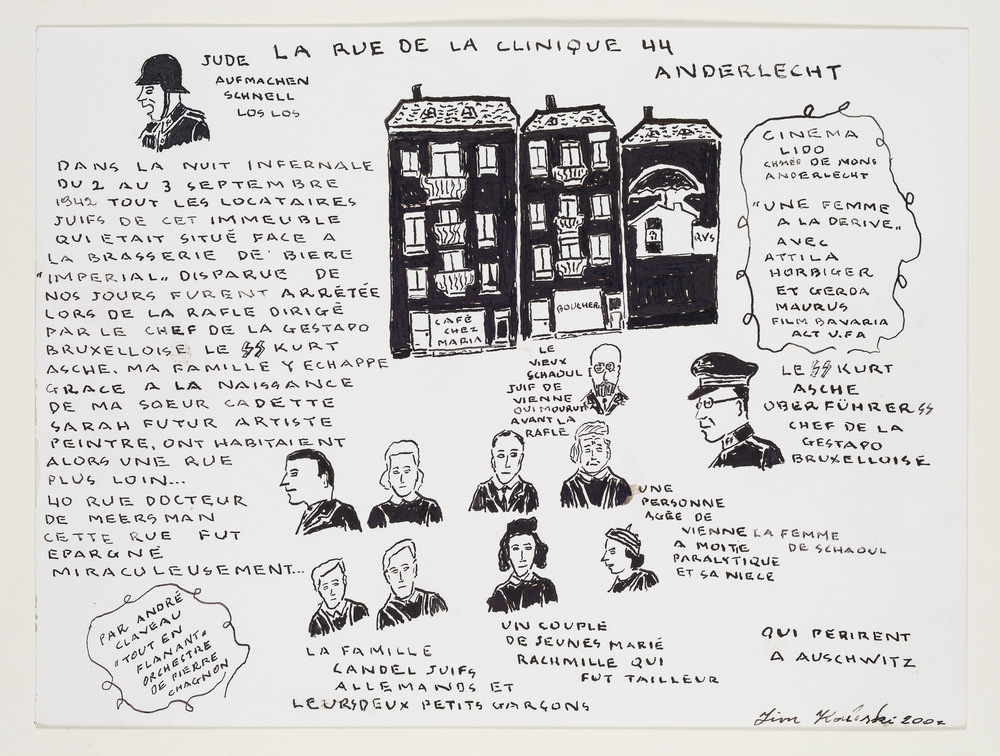 LA RUE DE LA CLINIQUE 44
ANDERLECHT
JUDE
AUFMACHEN
SCHNELL
LOS LOS
DANS LA NUIT INFERNALE
DU 2 AU 3 SEPTEMBRE
1942 TOUT LES LOCATAIRES
JUIFS DE CET IMMEUBLE
QUI ETAIT SITUÉ FACE A
LA BRASSERIE DE BIERE
"IMPERIAL„ DISPARUE DE
NOS JOURS FURENT ARRÊTÉE
LORS DE LA RAFLE DIRIGÉ
PAR LE CHEF DE LA GESTAPO
BRUXELLOISE LE SS KURT
ASCHE. MA FAMILLE Y ECHAPPE
GRACE A LA NAISSANCE
DE MA SOEUR CADETTE
SARAH FUTUR ARTISTE
PEINTRE, ONT HABITAIENT
ALORS UNE RUE
PLUS LOIN...
40 RUE DOCTEUR
DE MEERSMAN
CETTE RUE FUT
EPARGNÉ
MIRACULEUSEMENT...
CAFÉ
CHEZ
MARIA
BOUCHER.
RVS
CINEMA
LIDO
CHSÉE DE MONS
ANDERLECHT
"UNE FEMME
A LA DERIVE„
AVEC
ATTILA
HORBIGER
ET GERDA
MAURUS
FILM BAVARIA
ACT U.FA
LE
VIEUX
SCHAOUL
JUIF DE
VIENNE
QUI MOURUT
AVANT LA
RAFLE
LE SS KURT
ASCHE
OBERFÜHRER SS
CHEF DE LA
GESTAPO
BRUXELLOISE
UNE
PERSONNE
AGÉE DE
VIENNE LA FEMME
A MOITIE DE SCHAOUL
PARALYTIQUE
ET SA NIECE
PAR ANDRÉ
CLAVEAU
"TOUT EN
FLANANT„
ORCHESTRE
DE PIERRE
CHAGNON
LA FAMILLE
LANDEL JUIFS
ALLEMANDS ET
LEURS DEUX PETITS GARÇONS
UN COUPLE
DE JEUNES MARIÉ
RACHMILLE QUI
FUT TAILLEUR
QUI PERIRENT
A AUSCHWITZ
Jim Kaliski 2002